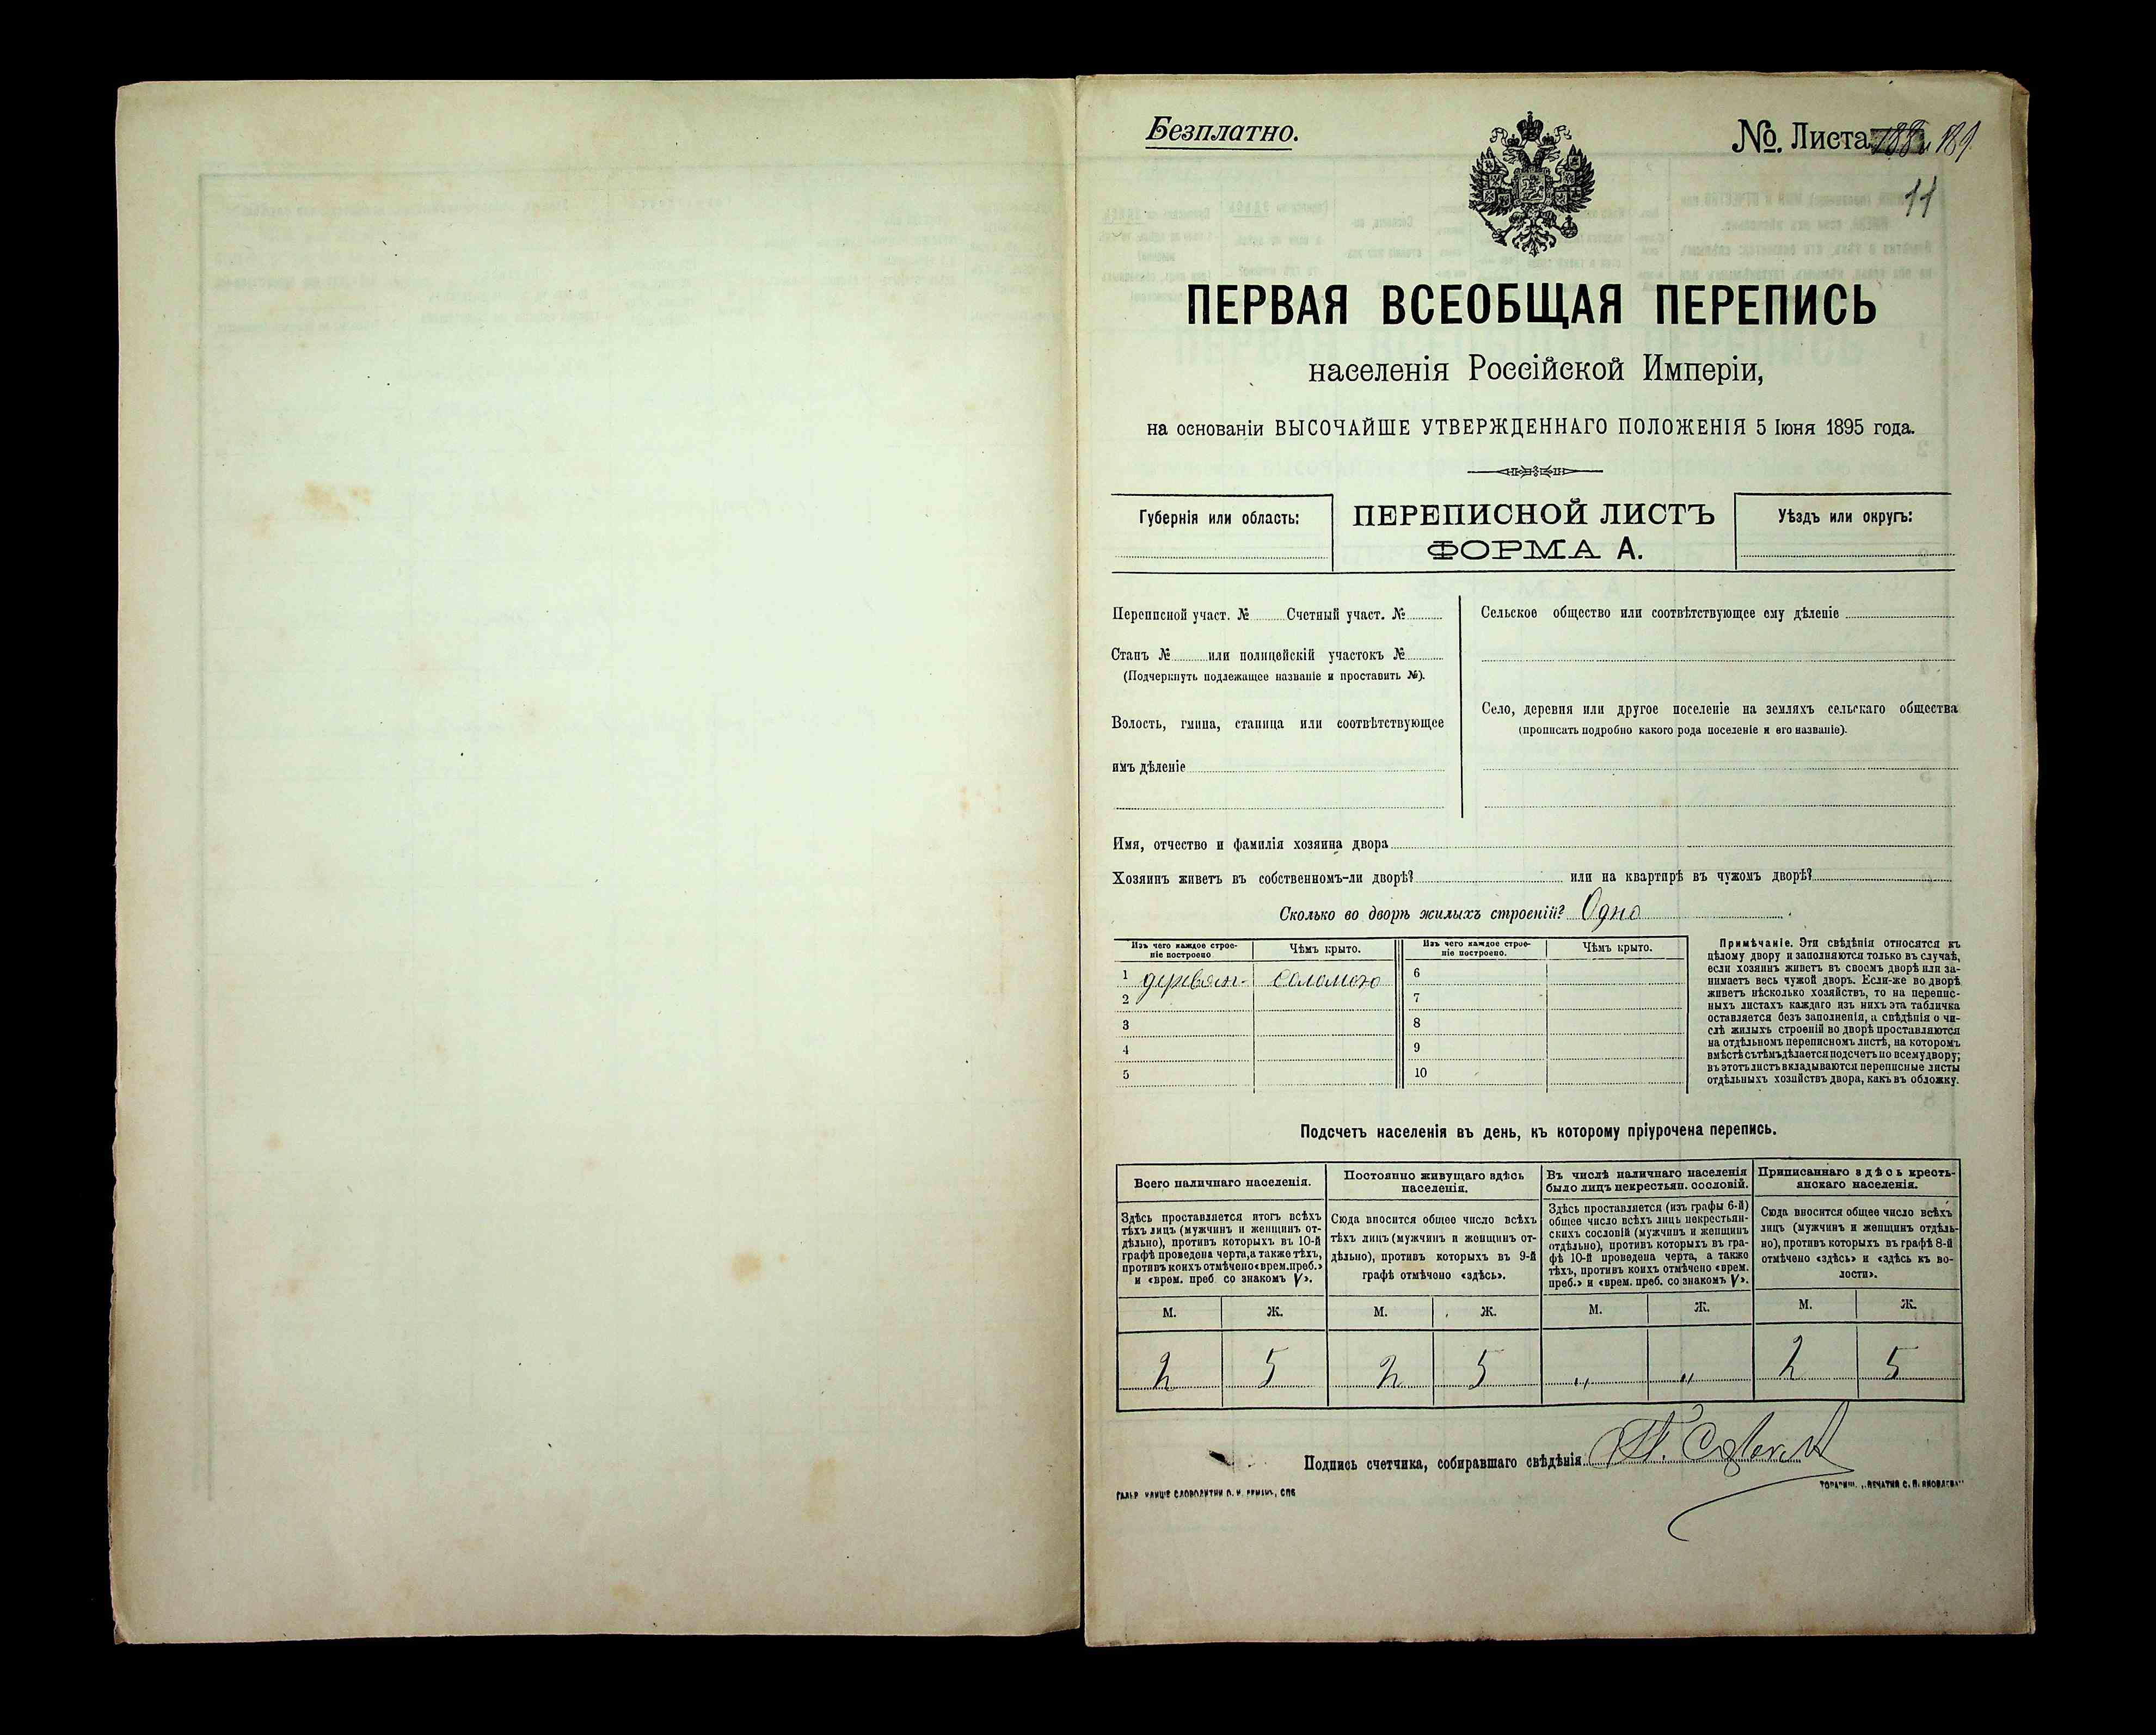 Безплатно.
№. Листа 189
11
ПЕРВАЯ ВСЕОБЩАЯ ПЕРЕПИСЬ
населенія Россійской Имперіи,
на основаніи ВЫСОЧАЙШЕ УТВЕРЖДЕННАГО ПОЛОЖЕНІЯ 5 Іюня 1895 года.
Губернія или область:
ПЕРЕПИСНОЙ ЛИСТЪ
ФОРМА А.
Уѣздъ или округъ:
Переписной участ. № Счетный участ. №
Станъ № или полицейскій участокъ №
(Подчеркнуть подлежащее названіе и проставить №).
Волость, гмина, станица или соотвѣтствующее
имъ дѣленіе
Сельское общество или соотвѣтствующее ему дѣленіе
Село, деревня или другое поселеніе на земляхъ сельскаго общества
(прописать подробно какого рода поселеніе и его названіе).
Имя, отчество и фамилія хозяина двора
Хозяинъ живетъ въ собственномъ-ли дворѣ? или на квартирѣ въ чужомъ дворѣ?
Сколько во дворѣ жилыхъ строеній? Одно
Изъ чего каждое строе-
ніе построено
Чѣмъ крыто.
1 деревян. соломою
2
3
4
5
Изъ чего каждое строе-
ніе построено.
Чѣмъ крыто.
6
7
8
9
10
Примѣчаніе. Эти свѣдѣнія относятся къ
цѣлому двору и заполняются только въ случаѣ,
если хозяинъ живетъ въ своемъ дворѣ или за-
нимаетъ весь чужой дворъ. Если-же во дворѣ
живетъ нѣсколько хозяйствъ, то на перепис-
ныхъ листахъ каждаго изъ нихъ эта табличка
оставляется безъ заполненія, а свѣдѣнія о чи-
слѣ жилыхъ строеній во дворѣ проставляются
на отдѣльномъ переписномъ листѣ, на которомъ
вмѣстѣ съ тѣмъ дѣлается подсчетъ по всему двору;
въ этотъ листъ вкладываются переписные листы
отдѣльныхъ хозяйствъ двора, какъ въ обложку.
Подсчетъ населенія въ день, къ которому пріурочена перепись.
Всего наличнаго населенія.
Здѣсь проставляется итогъ всѣхъ
тѣхъ лицъ (мужчинъ и женщинъ от-
дѣльно), противъ которыхъ въ 10-й
графѣ проведена черта, а также тѣхъ,
противъ коихъ отмѣчено «врем. преб.»
и «врем. преб. со знакомъ V».
М. Ж.
2 5
Постоянно живущаго здѣсь
населенія.
Сюда вносится общее число всѣхъ
тѣхъ лицъ (мужчинъ и женщинъ от-
дѣльно), противъ которыхъ въ 9-й
графѣ отмѣчено «здѣсь».
М. Ж.
2 5
Въ числѣ наличнаго населенія
было лицъ некрестьян. сословій.
Здѣсь проставляется (изъ графы 6-й)
общее число всѣхъ лицъ некрестьян-
скихъ сословій (мужчинъ и женщинъ
отдѣльно), противъ которыхъ въ гра-
фѣ 10-й проведена черта, а также
тѣхъ, противъ коихъ отмѣчено «врем.
преб.» и «врем. преб. со знакомъ V».
М. Ж.
„ „
Приписаннаго здѣсь кресть-
янскаго населенія.
Сюда вносится общее число всѣхъ
лицъ (мужчинъ и женщинъ отдѣль-
но), противъ которыхъ въ графѣ 8-й
отмѣчено «здѣсь» и «здѣсь къ во-
лости».
М. Ж.
2 5
Подпись счетчика, собиравшаго свѣдѣнія